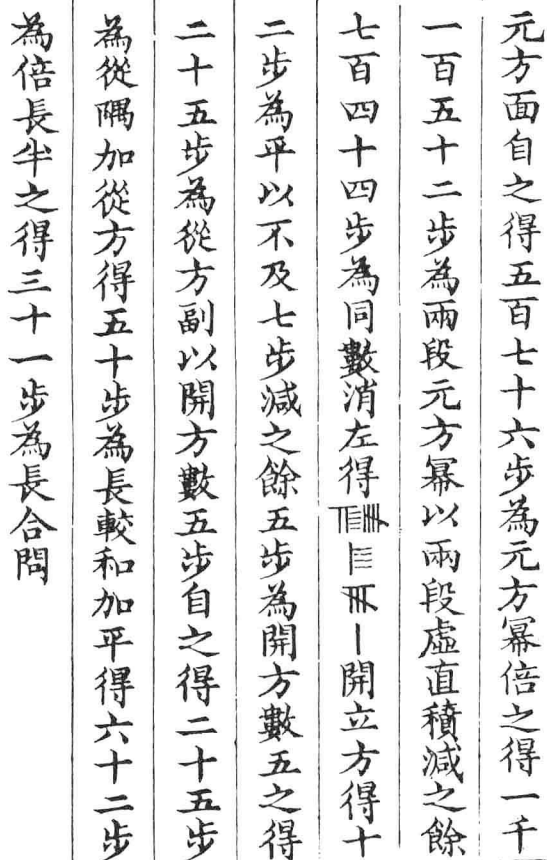 元方面自之得五百七十六步為元方冪倍之得一千
一百五十二步為兩段元方冪以兩段虛直積減之餘
七百四十四步為同數消左得開立方得十
二步為平以不及七步減之餘五步為開方數五之得
二十五步為從方副以開方數五步自之得二十五步
為從隅加從方得五十步為長較和加平得六十二步
為倍長半之得三十一步為長合問